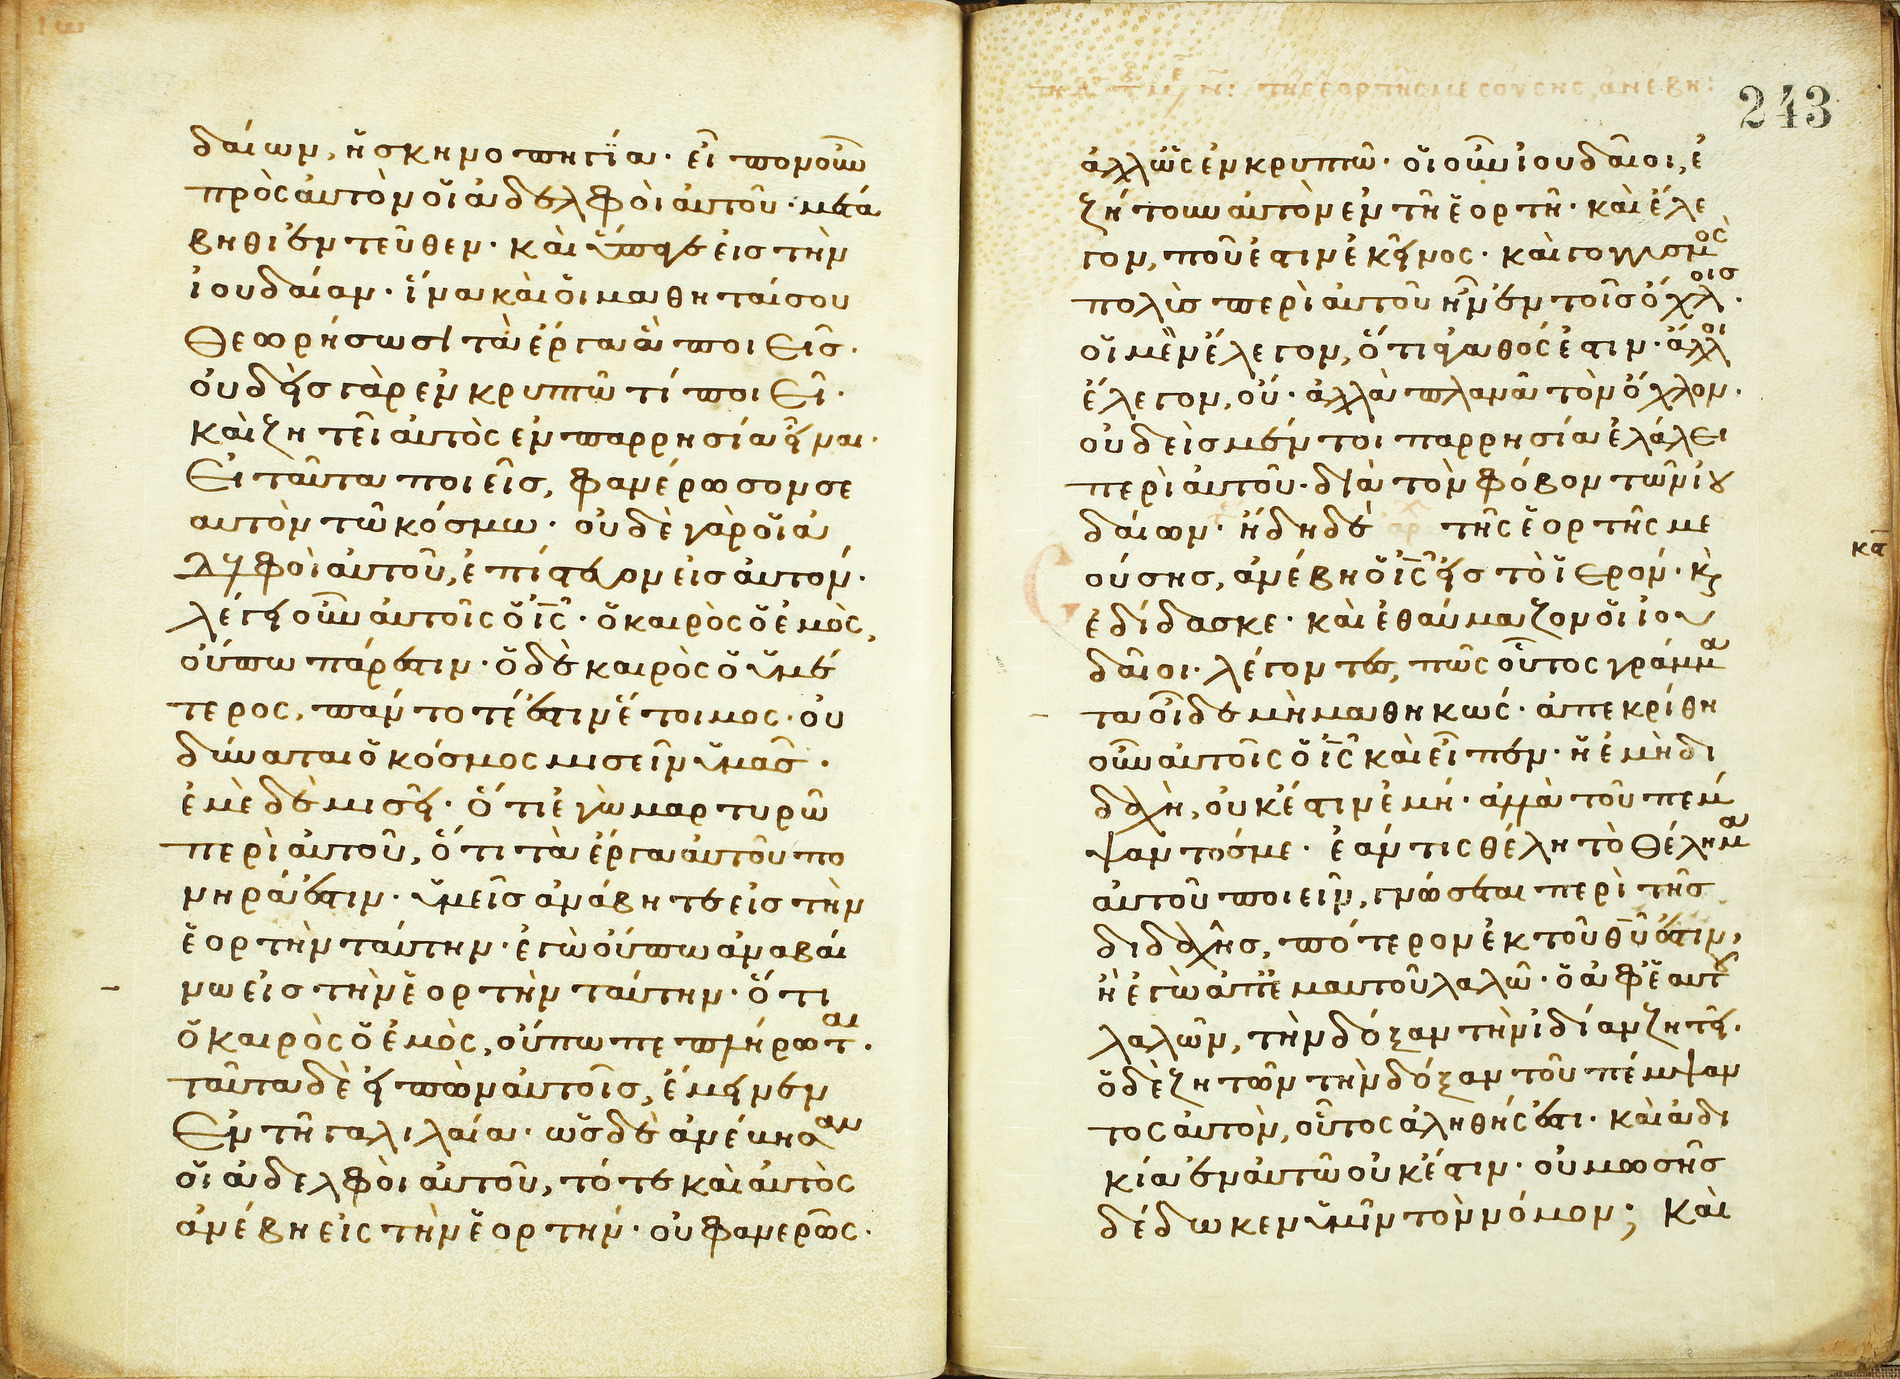 δαίων, ἡ σκηνοπηγία· εἶπον οὖν
πρὸς αὐτὸν οἱ ἀδελφοὶ αὐτοῦ· μετά
βηθι ἐντεῦθεν· καὶ ὕπαγε εἰς τὴν
ἰουδαίαν· ἵνα καὶ οἱ μαθηταί σου
θεωρήσωσι τὰ ἔργα ἃ ποιεῖς·
οὐδεὶς γὰρ ἐν κρυπτῶ τί ποιεῖ·
καὶ ζητεῖ αὐτὸς ἐν παρρησία εἶναι·
Εἰ ταῦτα ποιεῖς, φανέρωσον σε
αυτὸν τῶ κόσμω· οὐδὲ γὰρ οἱ ἀ
δελφοὶ αὐτοῦ, ἐπίστευον εἰς αὐτόν·
λέγει οὖν αὐτοῖς ὁ ἰς· ὁ καιρὸς ὁ ἐμὸς,
οὔπω πάρεστιν· ὁ δὲ καιρὸς ὁ ὑμέ
τερος, πάντοτέ ἐστιν ἕτοιμος· οὐ
δύναται ὁ κόσμος μισεῖν ὑμᾶς·
ἐμὲ δὲ μισεῖ· ὅτι ἐγὼ μαρτυρῶ
περὶ αὐτοῦ, ὅτι τὰ ἔργα αὐτοῦ πο
νηρά ἐστιν· ὑμεῖς ἀνάβητε εἰς τὴν
ἑορτὴν ταύτην· ἐγὼ οὔπω ἀναβαί
νω εἰς τὴν ἑορτὴν ταύτην· ὅτι
ὁ καιρὸς ὁ ἐμὸς, οὔπω πεπλήρωται·
ταῦτα δὲ εἰπὼν αὐτοῖς, ἔμεινεν
Ἐν τῆ γαλιλαία· ὡς δὲ ἀνέβησαν
οἱ ἀδελφοὶ αὐτοῦ, τότε καὶ αὐτὸς
ἀνέβη εἰς τὴν ἑορτήν· οὐ φανερῶς·
τῆς ἑορτῆς μεσούσης, ἀνέβη:
243
ἀλλ' ὡς ἐν κρυπτῶ· οἱ οὖν ἰουδαῖοι, ἐ
ζήτουν αὐτὸν ἐν τῆ ἑορτῆ· καὶ ἔλε
γον, ποῦ ἐστιν ἐκεῖνος· καὶ γογγυσμὸς
πολὺς περὶ αὐτοῦ ἦν ἐν τοῖς ὄχλοις·
οἱ μὲν ἔλεγον, ὅτι ἀγαθός ἐστιν· ἄλλοι
ἔλεγον, οὔ· ἀλλὰ πλανᾶ τὸν ὄχλον·
οὐδεὶς μέντοι παρρησία ἐλάλει
περὶ αὐτοῦ· διὰ τὸν φόβον τῶν ἰου
δαίων· ἤδη δὲ ἀρχ τῆς ἑορτῆς με
σούσης, ἀνέβη ὁ ἰς εἰς τὸ ἱερόν· κ
ἐδίδασκε· καὶ ἐθαύμαζον οἱ ἰου
δαῖοι· λέγοντες, πῶς οὗτος γράμμα
τα οἶδε μὴ μαθηκώς· ἀπεκρίθη
οὖν αὐτοῖς ὁ ἰς καὶ εἶπεν· ἡ ἐμὴ δι
δαχὴ, οὐκ ἔστιν ἐμή· ἀλλὰ τοῦ πέμ
ψαντός με· ἐάν τις θέλη τὸ θέλημα
αὐτοῦ ποιεῖν, γνώσεται περὶ τῆς
διδαχῆς, πότερον ἐκ τοῦ θυ ἐστιν,
ἢ ἐγὼ ἀπ' ἐμαυτοῦ λαλῶ· ὁ ἀφ' ἑαυτοῦ
λαλῶν, τὴν δόξαν τὴν ἰδίαν ζητεῖ·
ὁ δὲ ζητῶν τὴν δόξαν τοῦ πέμψαν
τος αὐτὸν, οὗτος ἀληθής ἐστι· καὶ ἀδι
κία ἐν αὐτῶ οὐκ ἔστιν· οὐ μωσῆς
δέδωκεν ὑμῖν τὸν νόμον; Καὶ